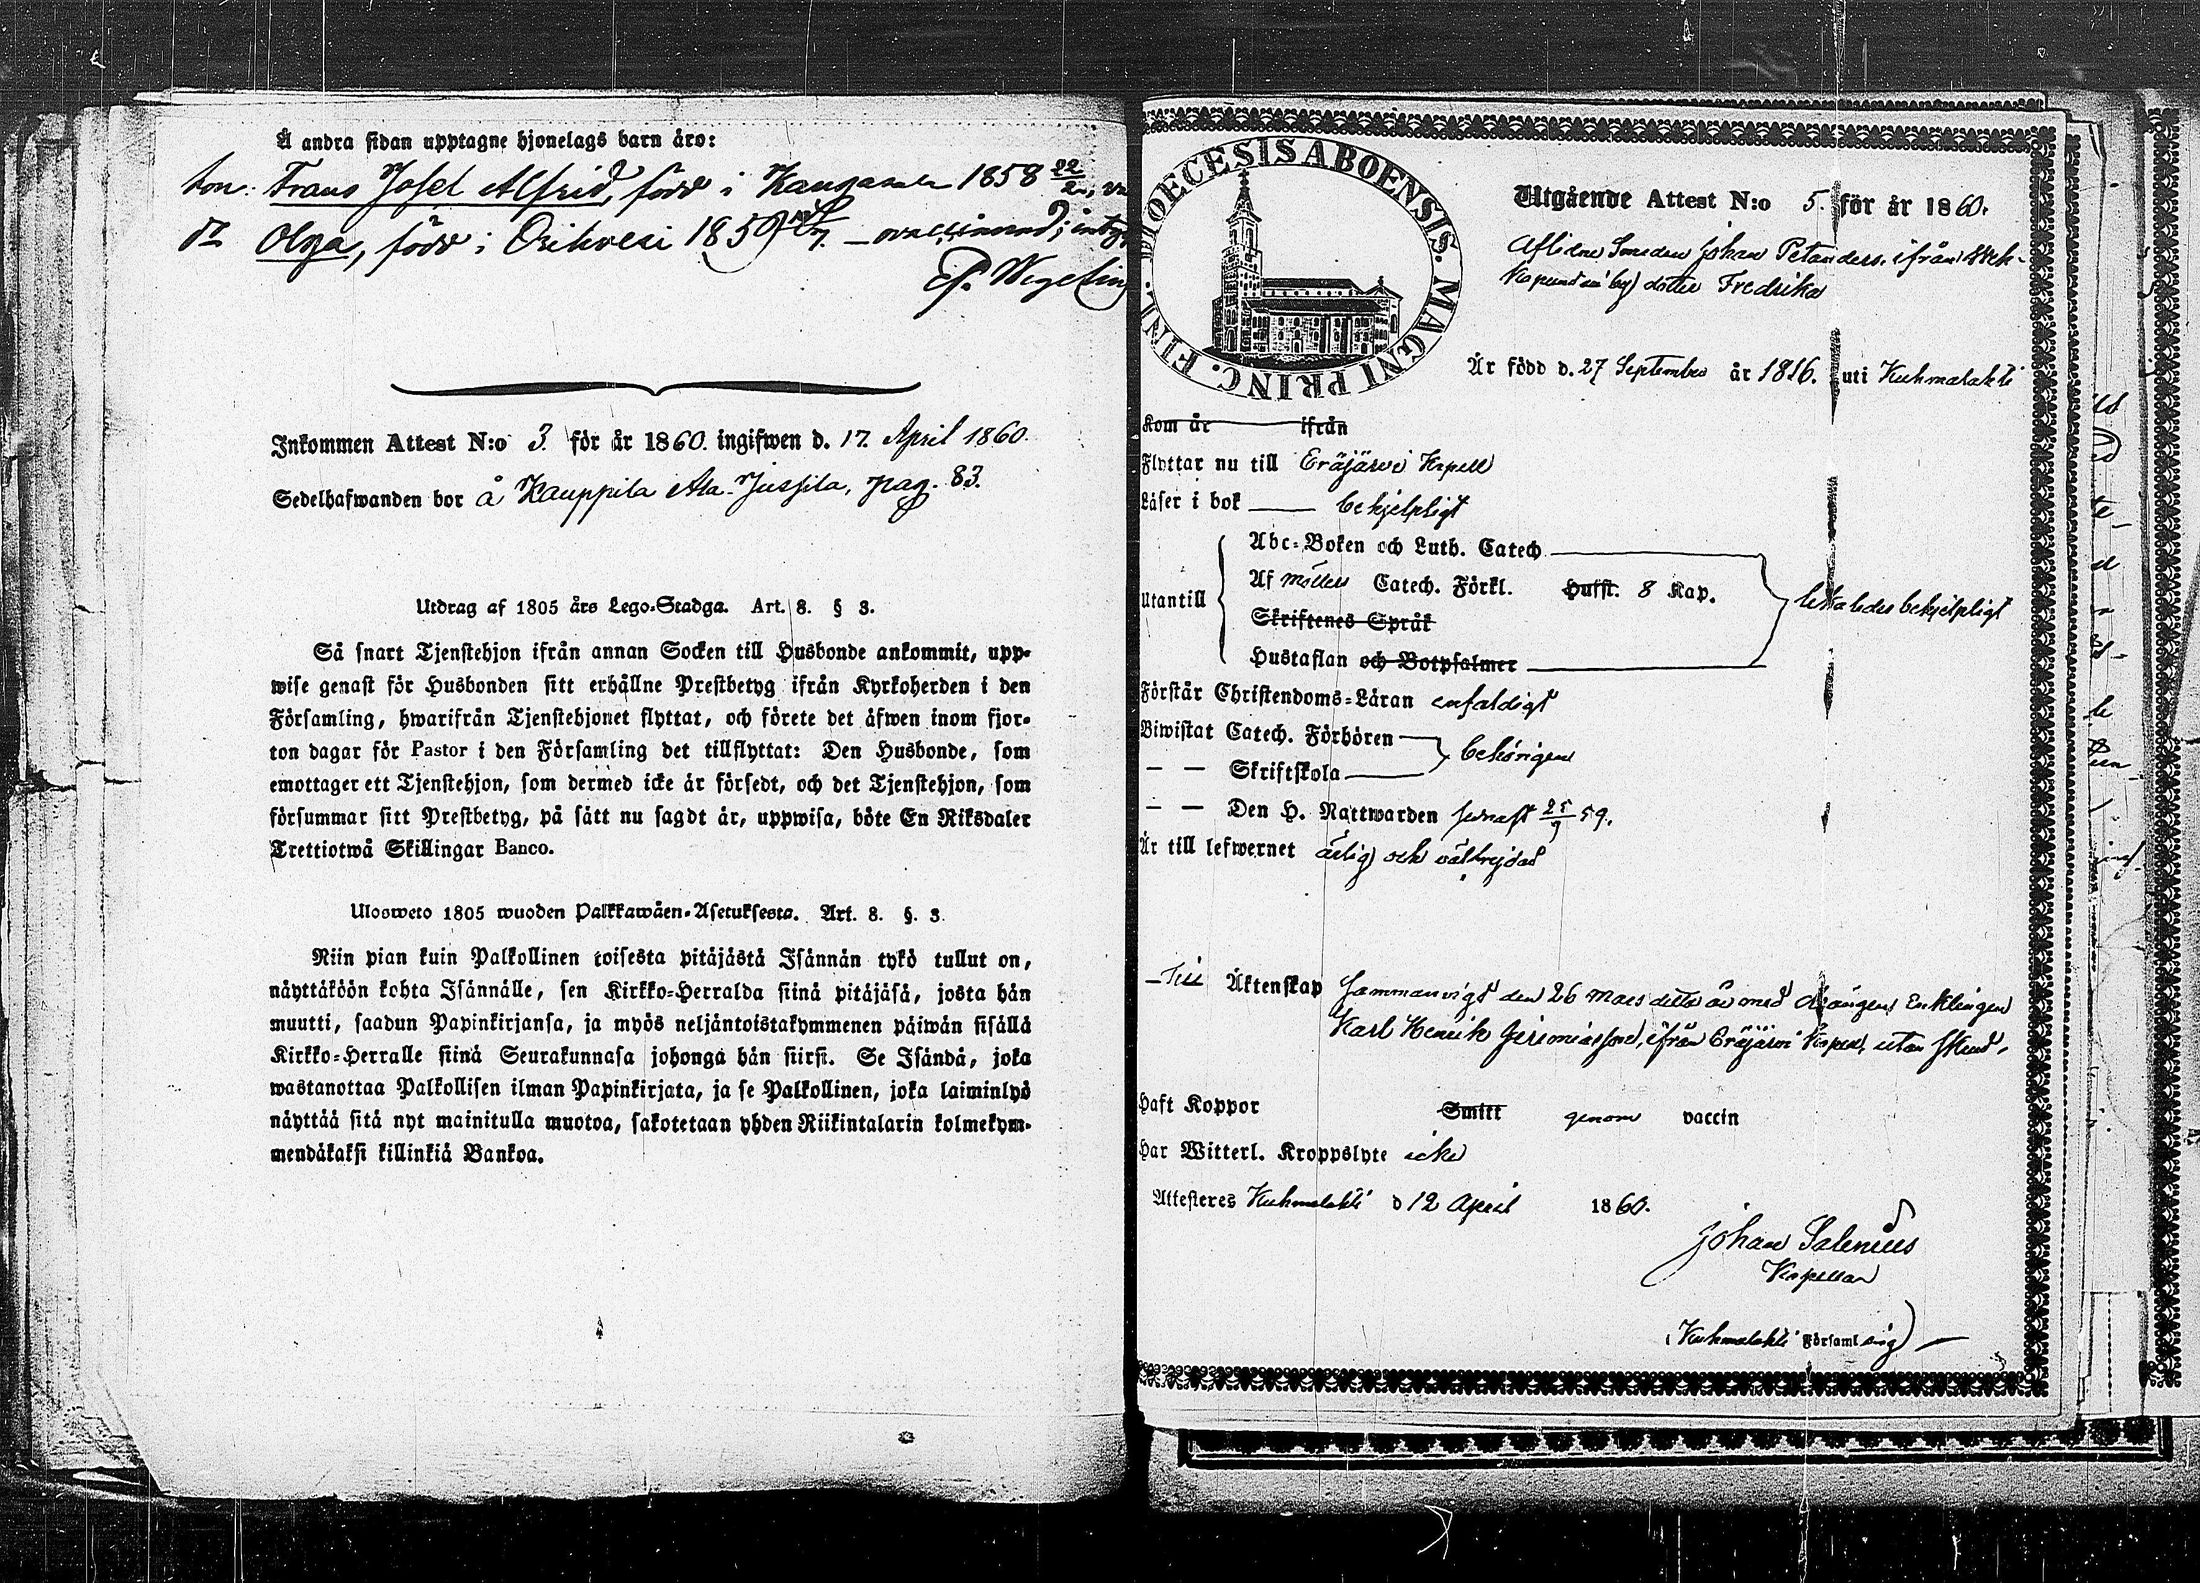 Å andra sidan upptagne hjonelags barn äro:
Son: Frans Josef Alfrid, född i Kangasala 1858 22/2
Dr Olga, född i Orihvesi 1859 ovaccinerad; intyg
Wegelius
Inkommen Attest N:o 3. för år 1860. ingifwen d. 17. April 1860.
Sedelhafwanden bor å Kauppila Ala-Jussila, pag. 83.
Utdrag af 1805 års Lego-Stadga. Art. 8. § 3.
Så snart Tjenstehjon ifrån annan Socken till Husbonde ankommit, upp-
wise genast för Husbonden sitt erhållne Prestbetyg ifrån Kyrkoherden i den
Församling, hwarifrån Tjenstehjonet flyttat, och förete det äfwen inom fjor-
ton dagar för Pastor i den Församling det tillflyttat: Den Husbonde, som
emottager ett Tjenstehjon, som dermed icke är försedt, och det Tjenstehjon, som
försummar sitt Prestbetyg, på sätt nu sagdt är, uppwisa, böte En Riksdaler
Trettiotwå Skillingar Banco.
Ulosweto 1805 wuoden Palkkawäen-Asetuksesta. Art. 8. §. 3.
Niin pian kuin Palkollinen toisesta pitäjästä Isännän tykö tullut on,
näyttäköön kohta Isännälle, sen Kirkko-Herralda siinä pitäjäsä, josta hän
muutti, saadun Papinkirjansa, ja myös neljäntoistakymmenen päiwän sisällä
Kirkko-Herralle siinä Seurakunnasa johonga hän siirsi. Se Isändä, joka
wastanottaa Palkollisen ilman Papinkirjata, ja se Palkollinen, joka laiminlyö
näyttää sitä nyt mainitulla muotoa, sakotetaan yhden Riikintalarin kolmekym-
mendäkaksi killinkiä Bankoa.
DIOECESIS ABOENSIS. MAGNI PRINC. FINL.
Utgående Attest N:o 5. för år 1860.
Aflidne Smeden Johan Petanders. ifrån
by dotter Fredrika
Är född d. 27 September år 1816. uti Kuhmalahti
Kom år ifrån
Flyttar nu till Eräjärvi Kapell
Läser i bok behjelpligt
Utantill
Abc-Boken och Luth. Catech
Af Möllers Catech. Förkl. Hufst. 8 Kap.
Skriftenes Språk
Hustaflan och Botpsalmer
likaledes behjelpligt
Förstår Christendoms-Läran enfaldigt
Biwistat Catech. Förhören
— — Skriftskola
behörigen
— — Den H. Nattwarden senast 25/9 59.
Är till lefwernet ärlig och välfrejdad
Till Äktenskap Sammanvigd den 26 Mars detta år med Drängen Enklingen
Karl Henrik Jeremiasson, ifrån Eräjärvi Kapell, utan
Haft Koppor Smitt genom vaccin
Har Witterl. Kroppslyte icke
Attesteres Kuhmalahti d 12 April 1860.
Johan Salenius
Kapellan
i Kuhmalahti Församling